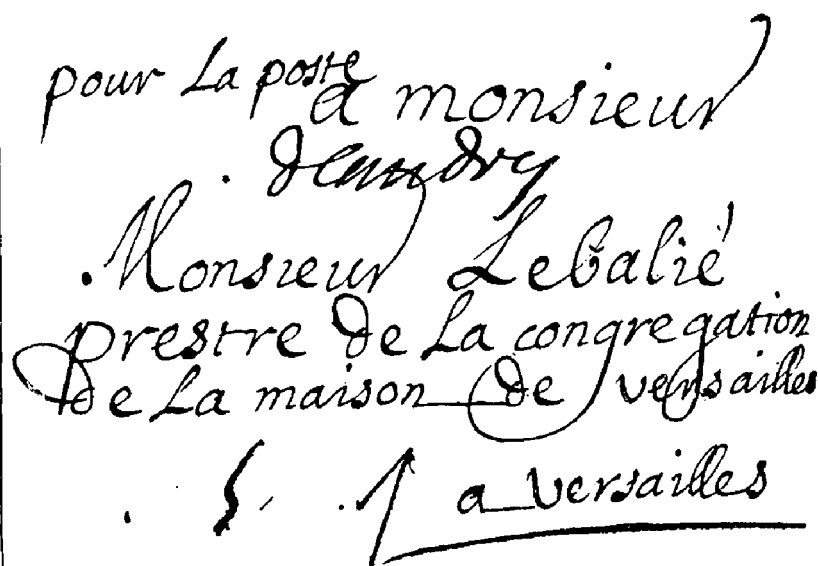 pour La poste
a monsieur
Monsieur Lebalié
prestre de La congregation
de La maison de versailles
a versailles